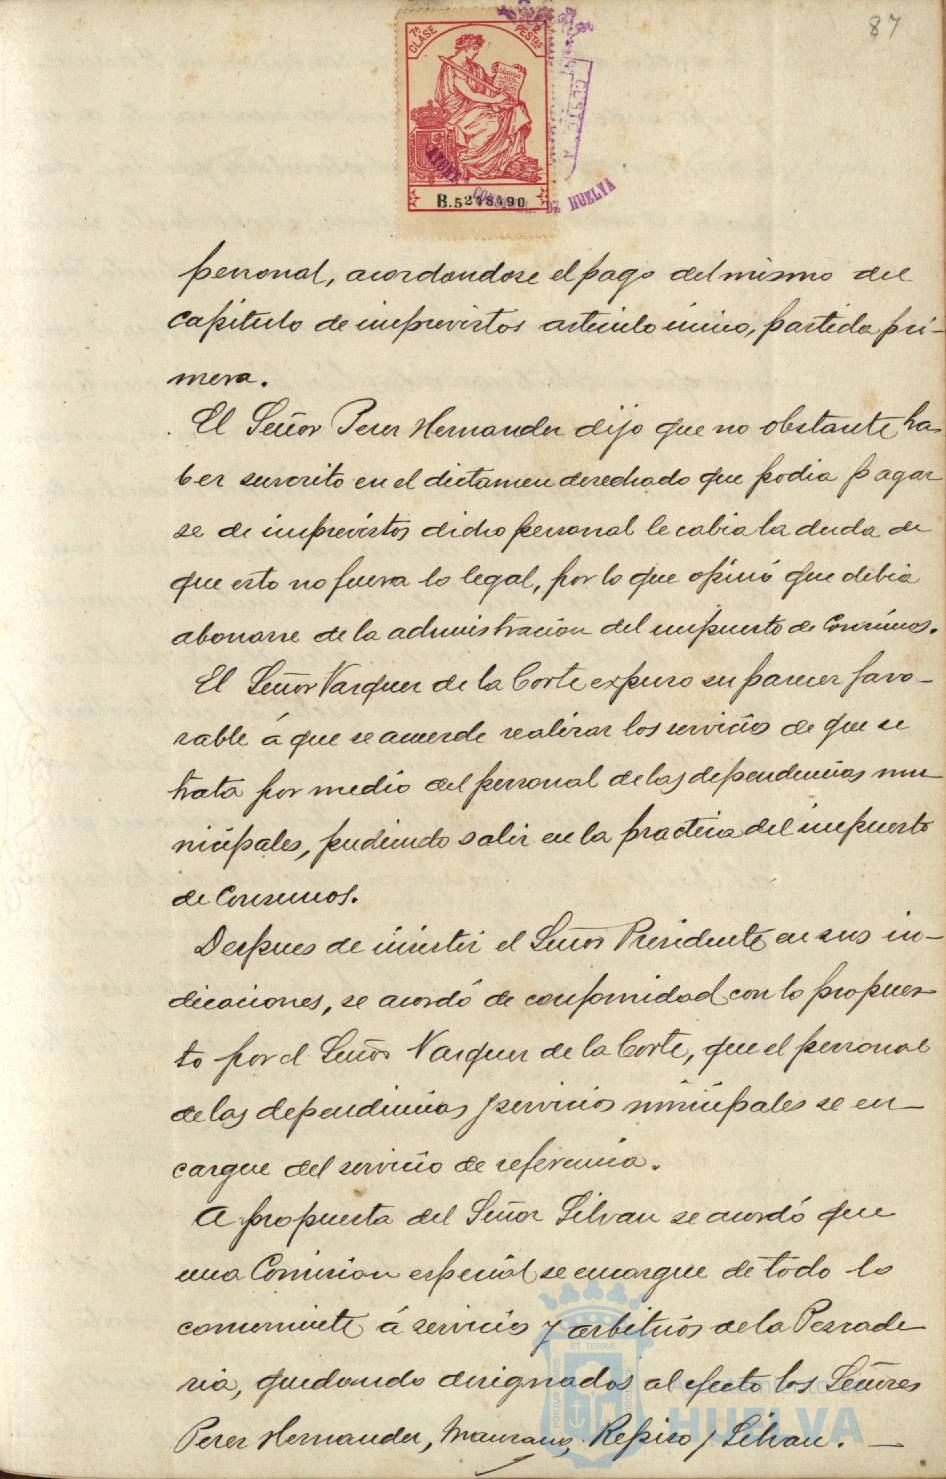 87
7ª CLASE
2 PESETAS
B.5248490
AYUNT. CONSTNAL. DE HUELVA
personal, acordandose el pago del mismo del
capitulo de imprevistos articulo unico, partida pri-
mera.
El Señor Perez Hernandez dijo que no obstante ha-
ber suscrito en el dictamen desechado que podia pagar
se de imprevistos dicho personal le cabia la duda de
que esto no fuera lo legal, por lo que opinó que debia
abonarse de la administracion del impuesto de Consumos.
El Señor Vazquez de la Corte expuso su parecer favo-
rable á que se acuerde realizar los servicios de que se
trata por medio del personal de las dependencias mu-
nicipales, pudiendo salir en la practica del impuesto
de Consumos.
Despues de insistir el Señor Presidente en sus in-
dicaciones, se acordó de conformidad con lo propues-
to por el Señor Vazquez de la Corte, que el personal
de las dependencias y servicios municipales se en-
cargue del servicio de referencia.
A propuesta del Señor Silvan se acordó que
una Comision especial se encargue de todo lo
concerniente á servicios y arbitrios de la Pescade
ria, quedando designados al efecto los Señores
Perez Hernandez, Manzano, Repiso y Silvan. —
Ayuntamiento de
HUELVA